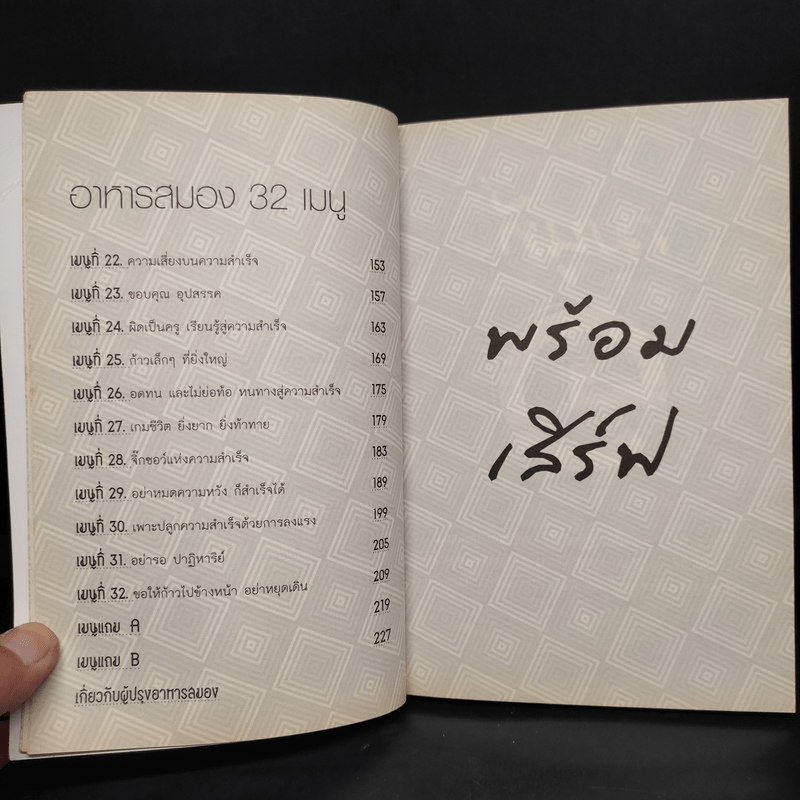 อาหารสมอง 32 เมนู
เมนูที่ 22. ความเสี่ยงบนความสำเร็จ 153
เมนูที่ 23. ขอบคุณ อุปสรรค 157
เมนูที่ 24. ผิดเป็นครู เรียนรู้สู่ความสำเร็จ 163
เมนูที่ 25. ก้าวเล็กๆ ที่ยิ่งใหญ่ 169
เมนูที่ 26. อดทน และไม่ย่อท้อ หนทางสู่ความสำเร็จ 175
เมนูที่ 27. เกมชีวิต ยิ่งยาก ยิ่งท้าทาย 179
เมนูที่ 28. จิ๊กซอว์แห่งความสำเร็จ 183
เมนูที่ 29. อย่าหมดความหวัง ก็สำเร็จได้ 189
เมนูที่ 30. เพาะปลูกความสำเร็จด้วยการลงแรง 199
เมนูที่ 31. อย่ารอ ปาฏิหาริย์ 205
เมนูที่ 32. ขอให้ก้าวไปข้างหน้า อย่าหยุดเดิน 209
เมนูแถม A 219
เมนูแถม B 227
เกี่ยวกับผู้ปรุงอาหารสมอง
พร้อม
เสิร์ฟ